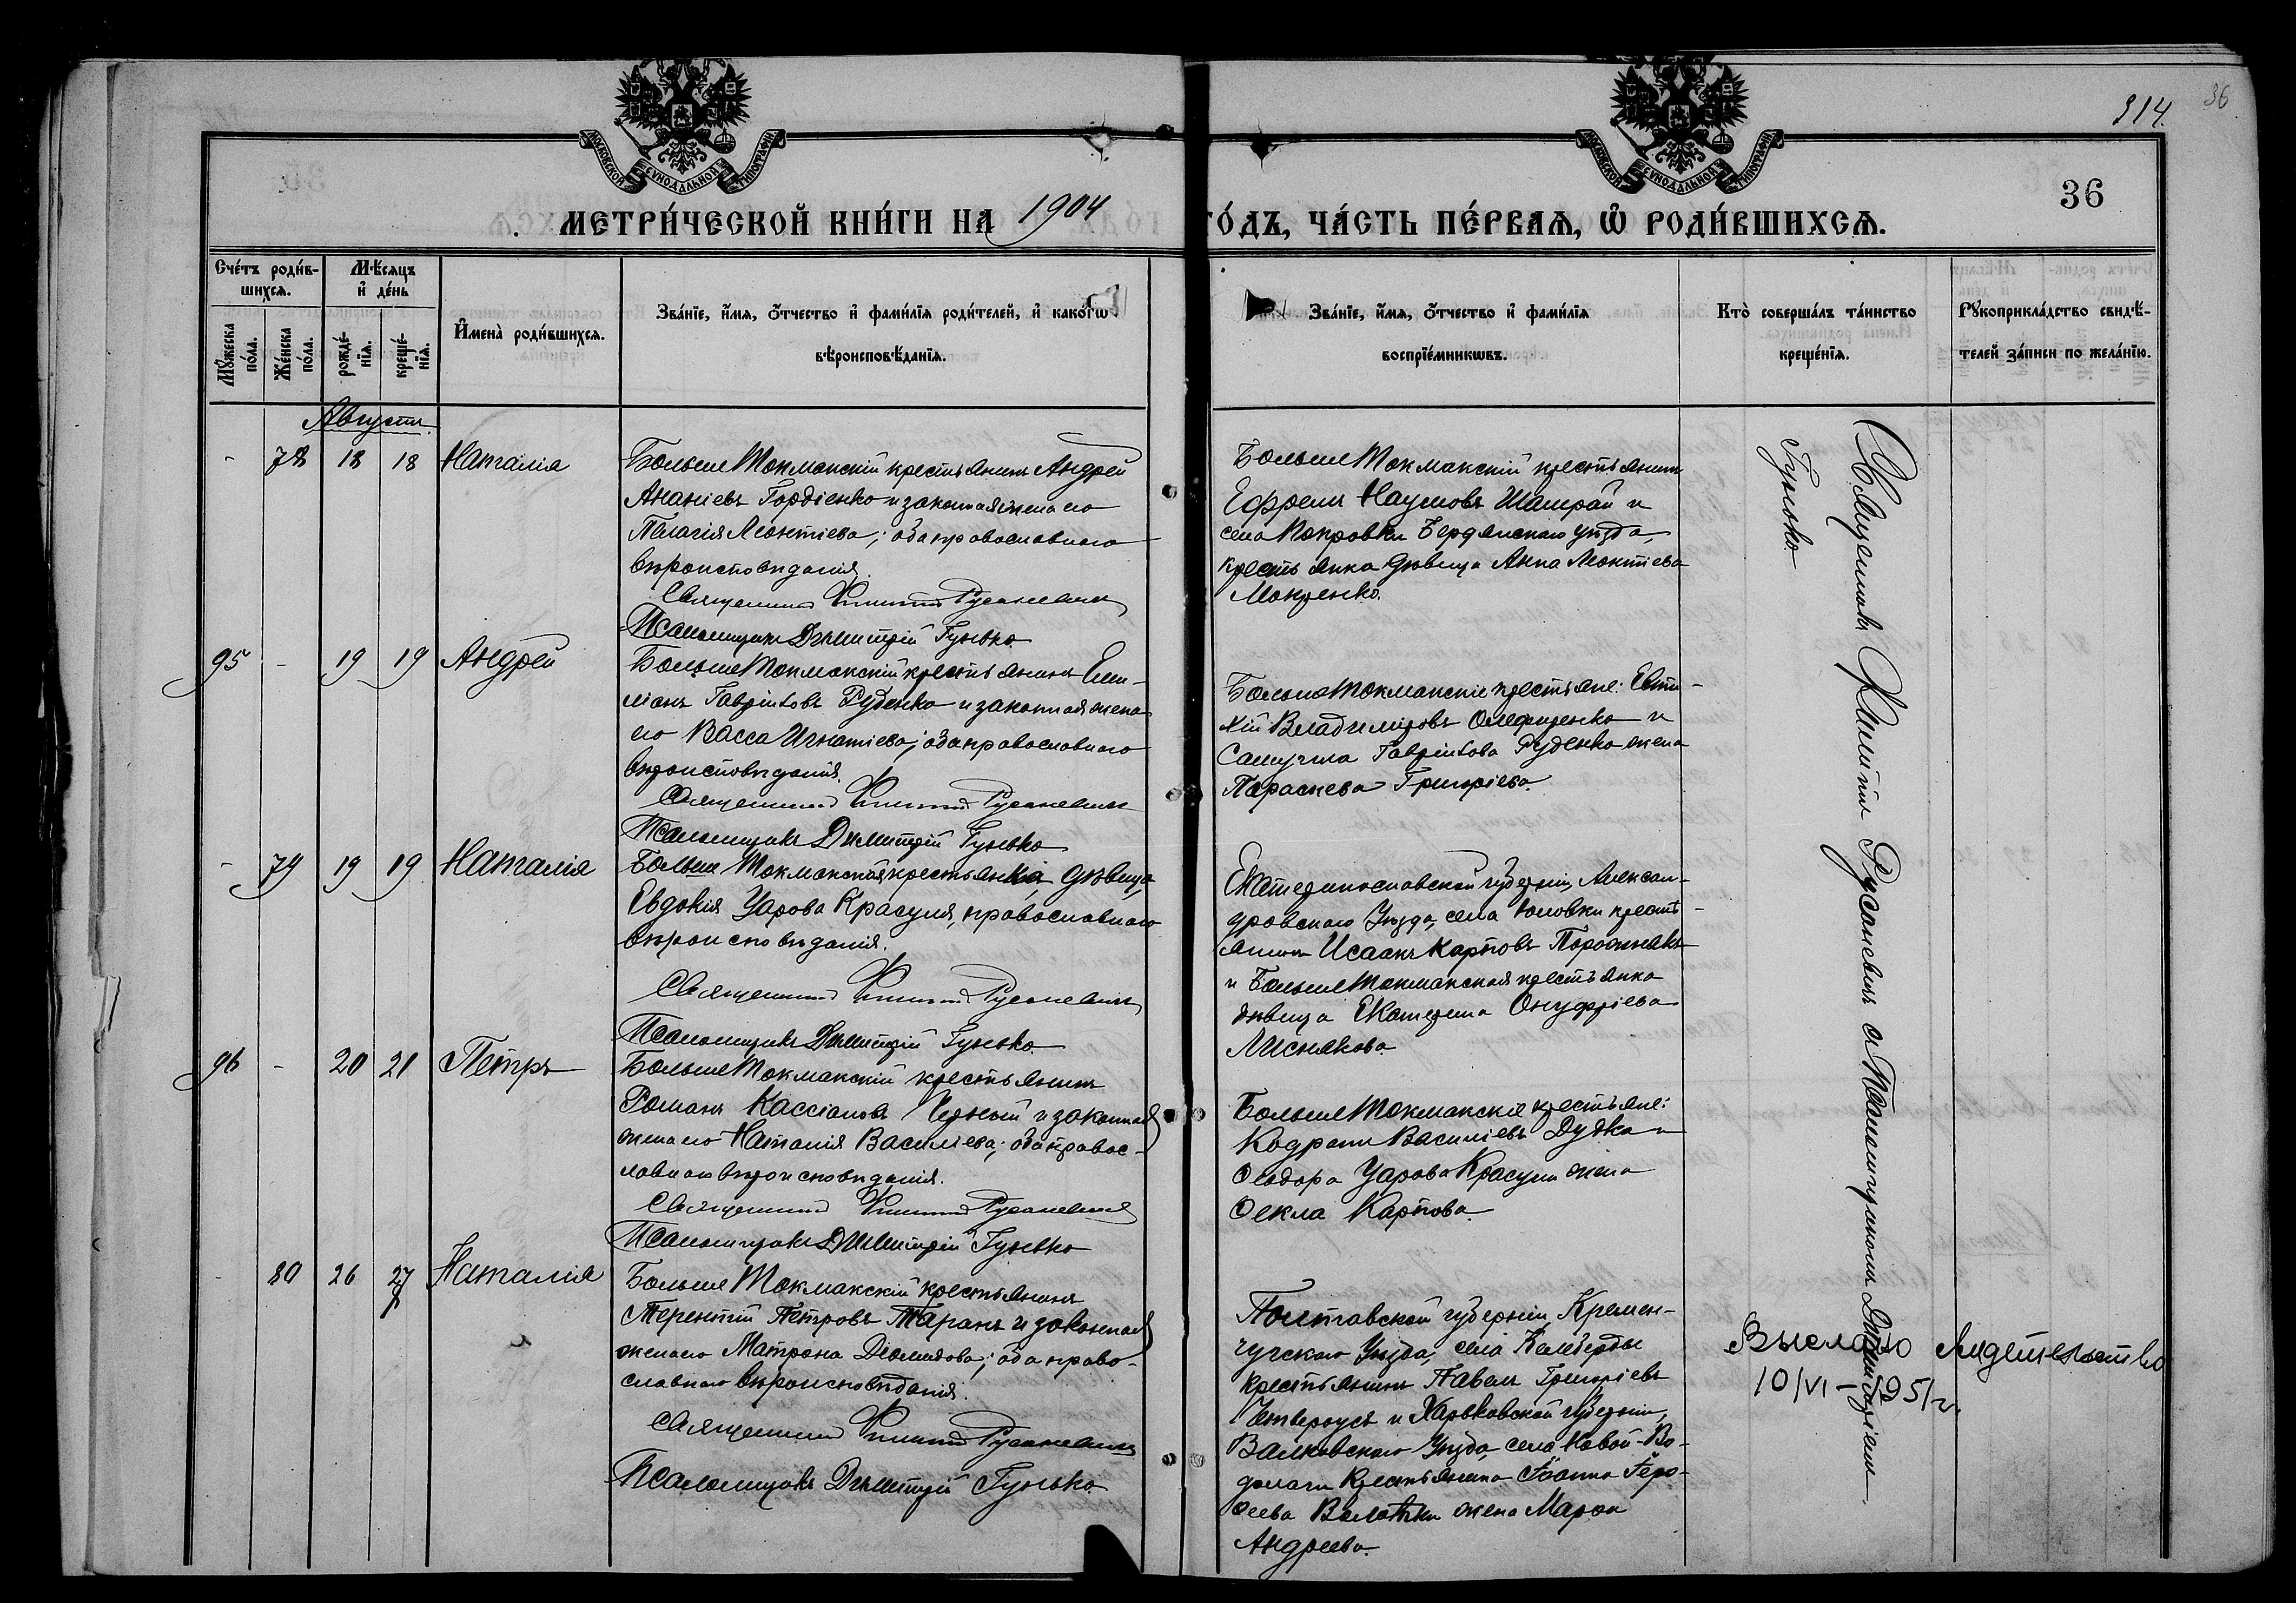 314.
36
МОСКОВСКОЙ СѴНОДАЛЬНОЙ ТИПОГРАФІИ
МОСКОВСКОЙ СѴНОДАЛЬНОЙ ТИПОГРАФІИ
36
МЕТРИ́ЧЕСКОЙ КНИ́ГИ НА 1904 ГО́ДЪ, ЧА́СТЬ ПЕ́РВАѦ, Ѡ҆ РОДИ́ВШИХСѦ.
Сче́тъ роди́в-
шихсѧ.
Мꙋ́жеска по́ла.
Же́нска по́ла.
Мѣ́сѧцъ
и҆ де́нь
рожде́-
нїѧ.
креще́-
нїѧ.
И҆мена̀ роди́вшихсѧ.
Зва́нїе, и҆́мѧ, ѻ҆́тчество и҆ фами́лїѧ роди́телей, и҆ како́гѡ
вѣроисповѣ́данїѧ.
Зва́нїе, и҆́мѧ, ѻ҆́тчество и҆ фами́лїѧ
воспрїе́мникѡвъ.
Кто̀ соверша́лъ та́инство
креще́нїѧ.
Рꙋкоприкла́дство свидѣ́-
телей за́писи по жела́нїю.
Августъ.
- 78 18 18 Наталія
БольшеТокмакскій крестьянинъ Андрей
Ананіевъ Гордіенко и законная жена его
Пелагія Леонтіева; оба православнаго
вѣроисповѣданія.
Священникъ Филиппъ Русаневичъ
Псаломщикъ Димитрій Гунько.
БольшеТокмакскій крестьянинъ
Ефремъ Наумовъ Шамрай и
села Покровки Бердянскаго уѣзда,
крестьянка дѣвица Анна Леонтіева
Мокренко.
95 - 19 19 Андрей
БольшеТокмакскій крестьянинъ Еми-
ліанъ Гавріиловъ Руденко и законная жена
его Васса Игнатіева; оба православнаго
вѣроисповѣданія.
Священникъ Филиппъ Русаневичъ
Псаломщикъ Димитрій Гунько
БольшеТокмакскіе крестьяне: Евти-
хій Владиміровъ Омельченко и
Самуила Гавріилова Руденко жена
Параскева Григоріева.
- 79 19 19 Наталія
Больше Токмакская крестьянка дѣвица
Евдокія Уарова Красуля, православнаго
вѣроисповѣданія.
Священникъ Филиппъ Русаневичъ
Псаломщикъ Димитрій Гунько.
Екатеринославской губерніи, Алексан-
дровскаго Уѣзда, села крестъ-
янинъ Исаакъ Карповъ Порожнякъ
и БольшеТокмакская крестьянка
дѣвица Екатерина Онуфріева
Лиснякова.
96 - 20 21 Петръ
БольшеТокмакскій крестьянинъ
Романъ Кассіановъ Черный и законная
жена его Наталія Василіева; оба правос-
лавнаго вѣроисповѣданія.
Священникъ Филиппъ Русаневичъ
Псаломщикъ Димитрій Гунько
БольшеТокмакскіе крестьяне:
Кодратъ Василіевъ Дудка и
Ѳеодора Уарова Красули жена
Ѳекла Карпова.
- 80 26 27 Наталія
Больше Токмакскій крестьянинъ
Терентій Петровъ Таранъ и законная
жена его Матрона Діомидова; оба право-
славнаго вѣроисповѣданія.
Священникъ Филиппъ Русаневичъ
Псаломщикъ Димитрій Гунько.
Полтавской губерніи, Кремен-
чугскаго Уѣзда, села Келеберды
крестьянинъ Павелъ Григоріевъ
Четвероусъ и Харьковской губерніи,
Валковскаго Уѣзда, села Новой-Во-
долаги крестьянина Іоанна
жена Марѳа
Андреева.
Священникъ Филиппъ Русаневичъ съ Псаломщикомъ Димитріемъ
Гунько.
Выслано свидетельство
10/VI - 1951 г.